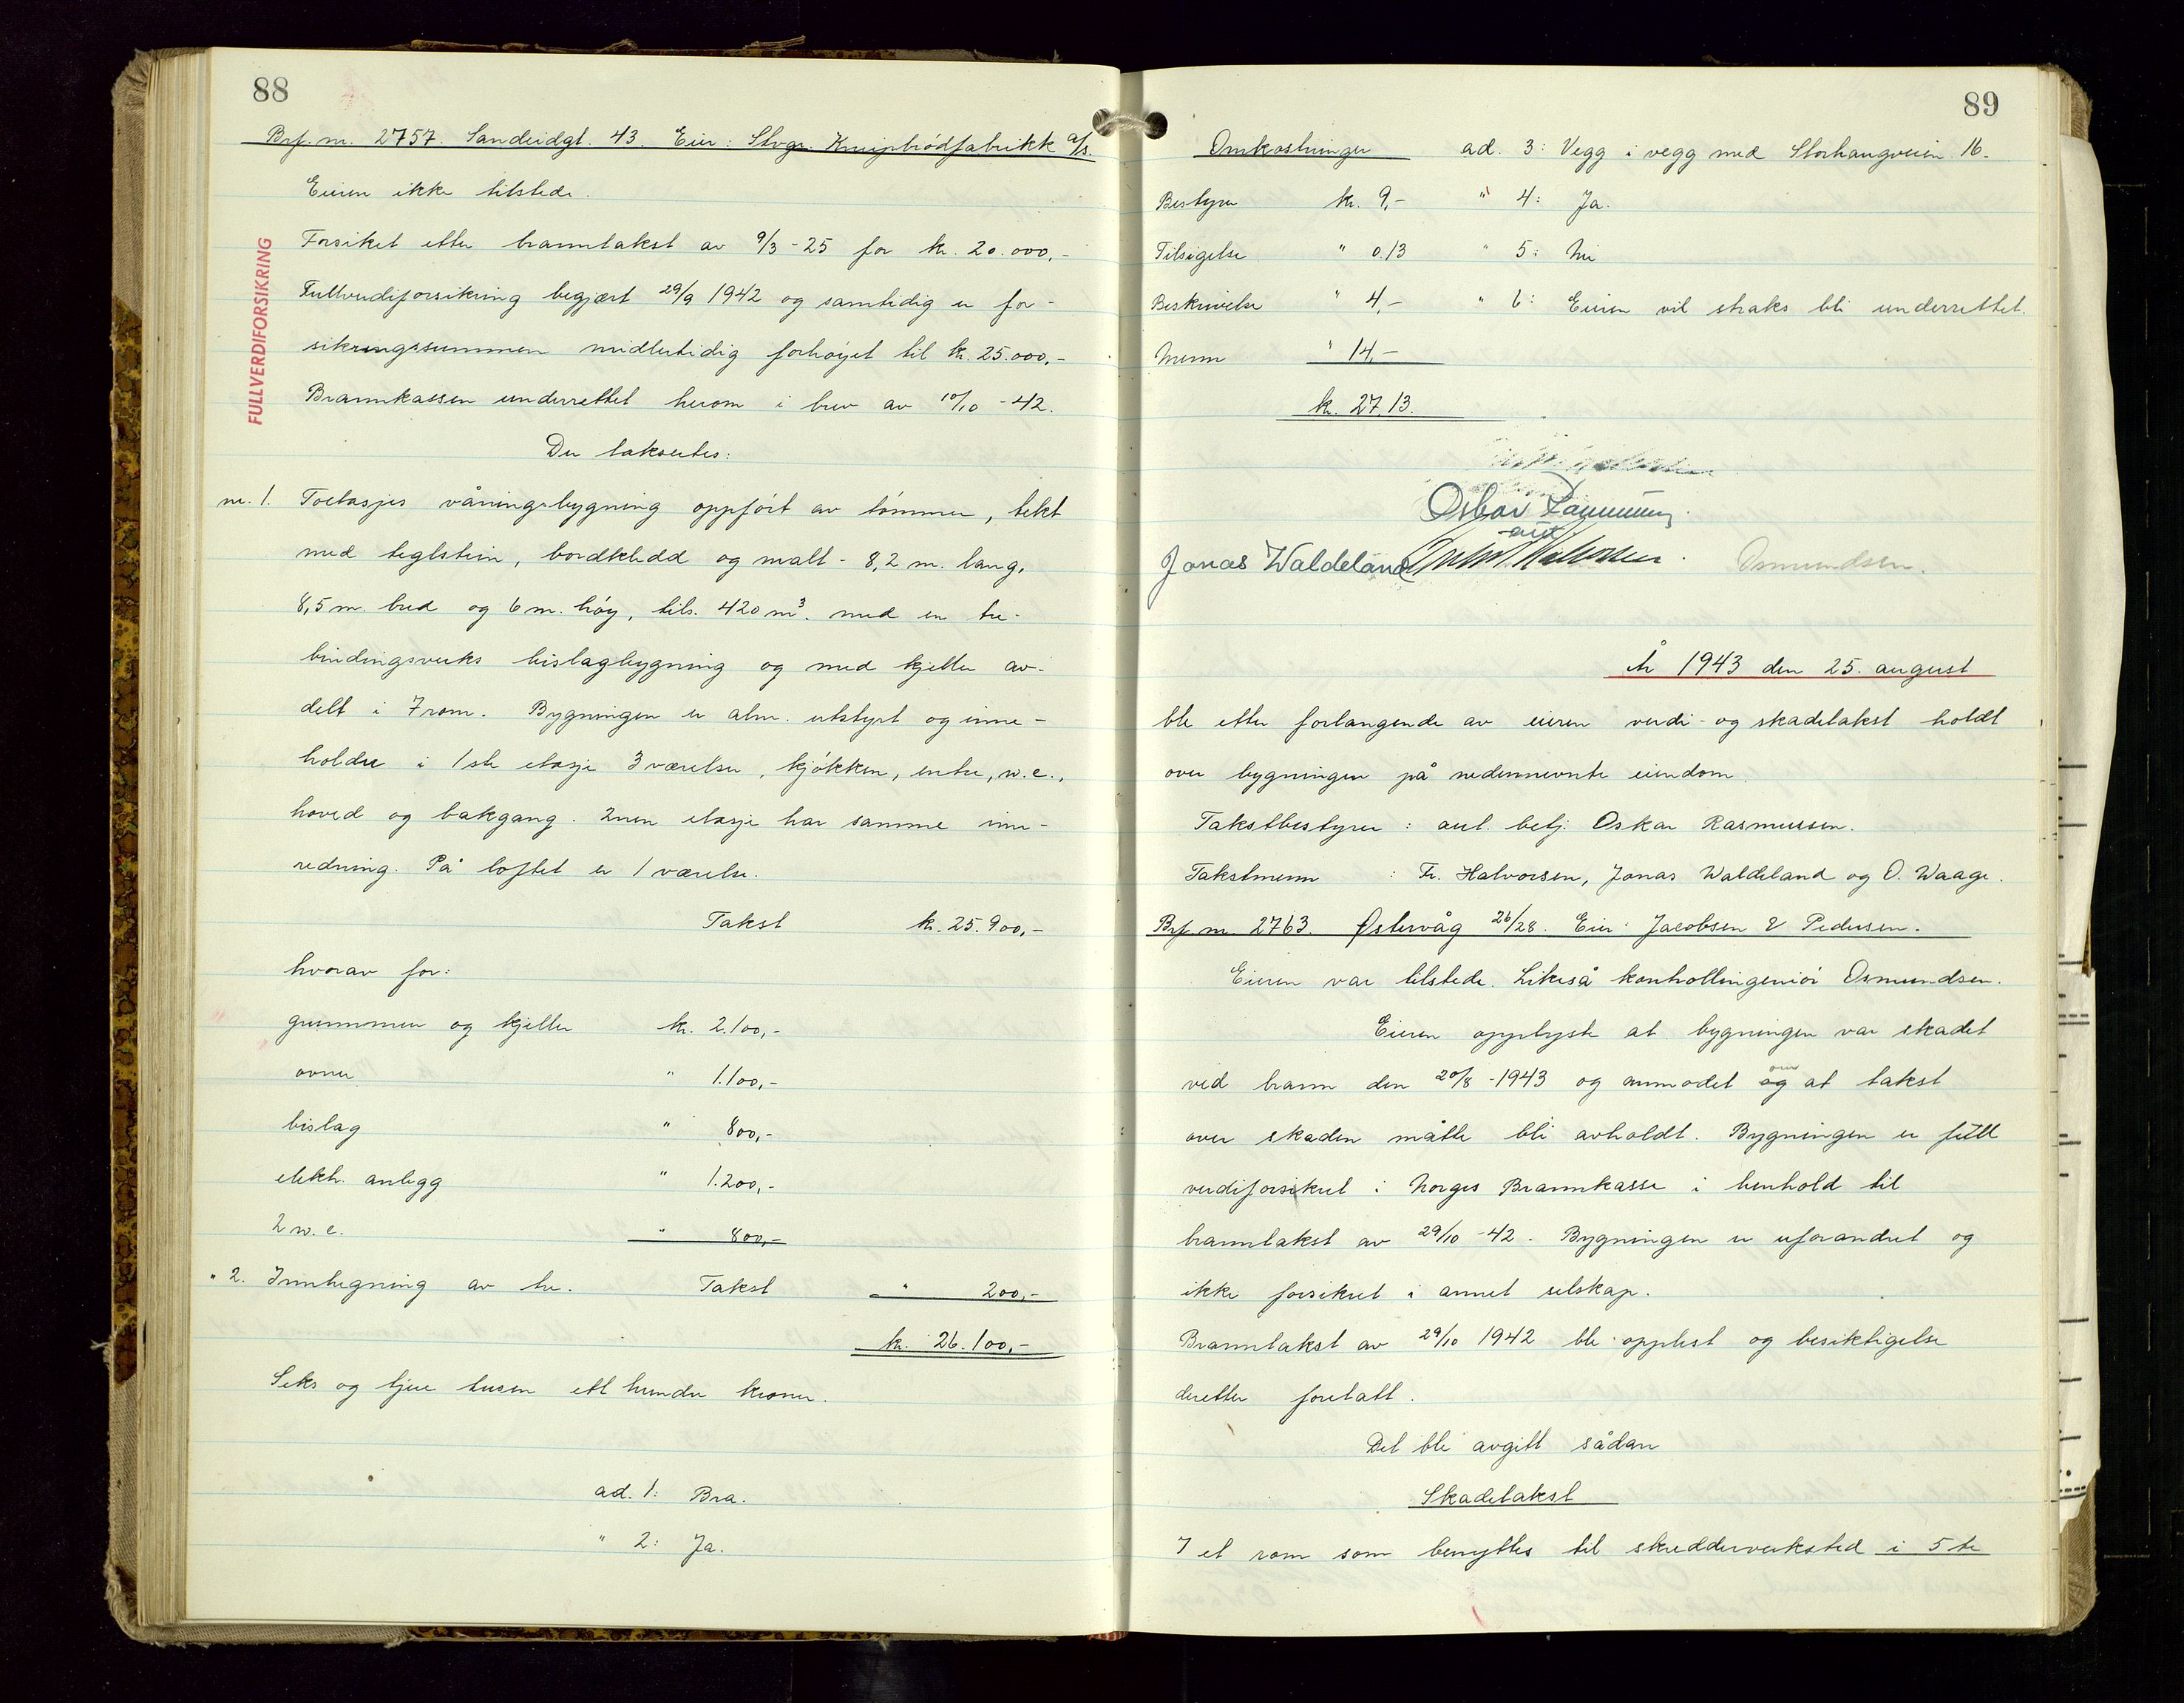 88
Brf. nr. 2757. Sandeidgt. 43. Eier: Stvgr. Kneipbrødfabrikk a/s.
Eieren ikke tilstede.
FULLVERDIFORSIKRING
Forsikret etter branntakst av 9/3 - 25 for kr. 20.000,-
Fullverdiforsikring begjært 29/9 1942 og samtidig er for-
sikringssummen midlertidig forhøyet til kr. 25.000,-
Brannkassen underrettet herom i brev av 10/10 - 42.
Der takseres:
nr. 1. Toetasjes våningsbygning oppført av tømmer, tekt
med teglstein, bordkledd og malt - 8,2 m. lang,
8,5 m. bred og 6 m. høy, tils. 420 m³. med en tre-
bindingsverks bislagbygning og med kjeller av-
delt i 7 rom. Bygningen er alm. utstyrt og inne-
holder i 1ste etasje 3 værelser, kjøkken, entre, w.c.,
hoved og bakgang. 2nen etasje har samme inn-
redning. På loftet er 1 værelse.
Takst kr. 25.900,-
hvorav for:
grunnmur og kjeller kr. 2.100,-
ovner " 1.100,-
bislag " 800,-
elektr. anlegg " 1.200,-
2 w.c. " 800,-
" 2. Innhegning av tre. Takst " 200,-
kr. 26.100,-
Seks og tjue tusen ett hundre kroner.
ad. 1: Bra.
" 2: Ja.
89
Omkostninger ad. 3: Vegg i vegg med Storhaugveien 16.
Bestyrer kr. 9,- " 4: Ja.
Tilsigelse " 0.13 " 5: Nei
Beskrivelse " 4,- " 6: Eieren vil straks bli underrettet.
Menn " 14,-
kr. 27.13.
Oskar Rasmussen
aut
Jonas Waldeland Fredrik Halvorsen. Osmundsen.
År 1943 den 25. august
ble etter forlangende av eieren verdi- og skadetakst holdt
over bygningen på nedennevnte eiendom.
Takstbestyrer: aut. betj. Oskar Rasmussen.
Takstmenn : Fr. Halvorsen, Jonas Waldeland og O. Waage.
Brf. nr. 2763. Østervåg 26/28. Eier: Jacobsen & Pedersen.
Eieren var tilstede. Likeså kontrollingeniør Osmundsen.
Eieren opplyste at bygningen var skadet
ved brann den 20/8 - 1943 og anmodet og om at takst
over skaden måtte bli avholdt. Bygningen er full
verdiforsikret i Norges Brannkasse i henhold til
branntakst av 29/10 - 42. Bygningen er uforandret og
ikke forsikret i annet selskap.
Branntakst av 29/10 1942 ble opplest og besiktigelse
deretter foretatt.
Det ble avgitt sådan
Skadetakst
I et rom som benyttes til skredderverksted i 5te